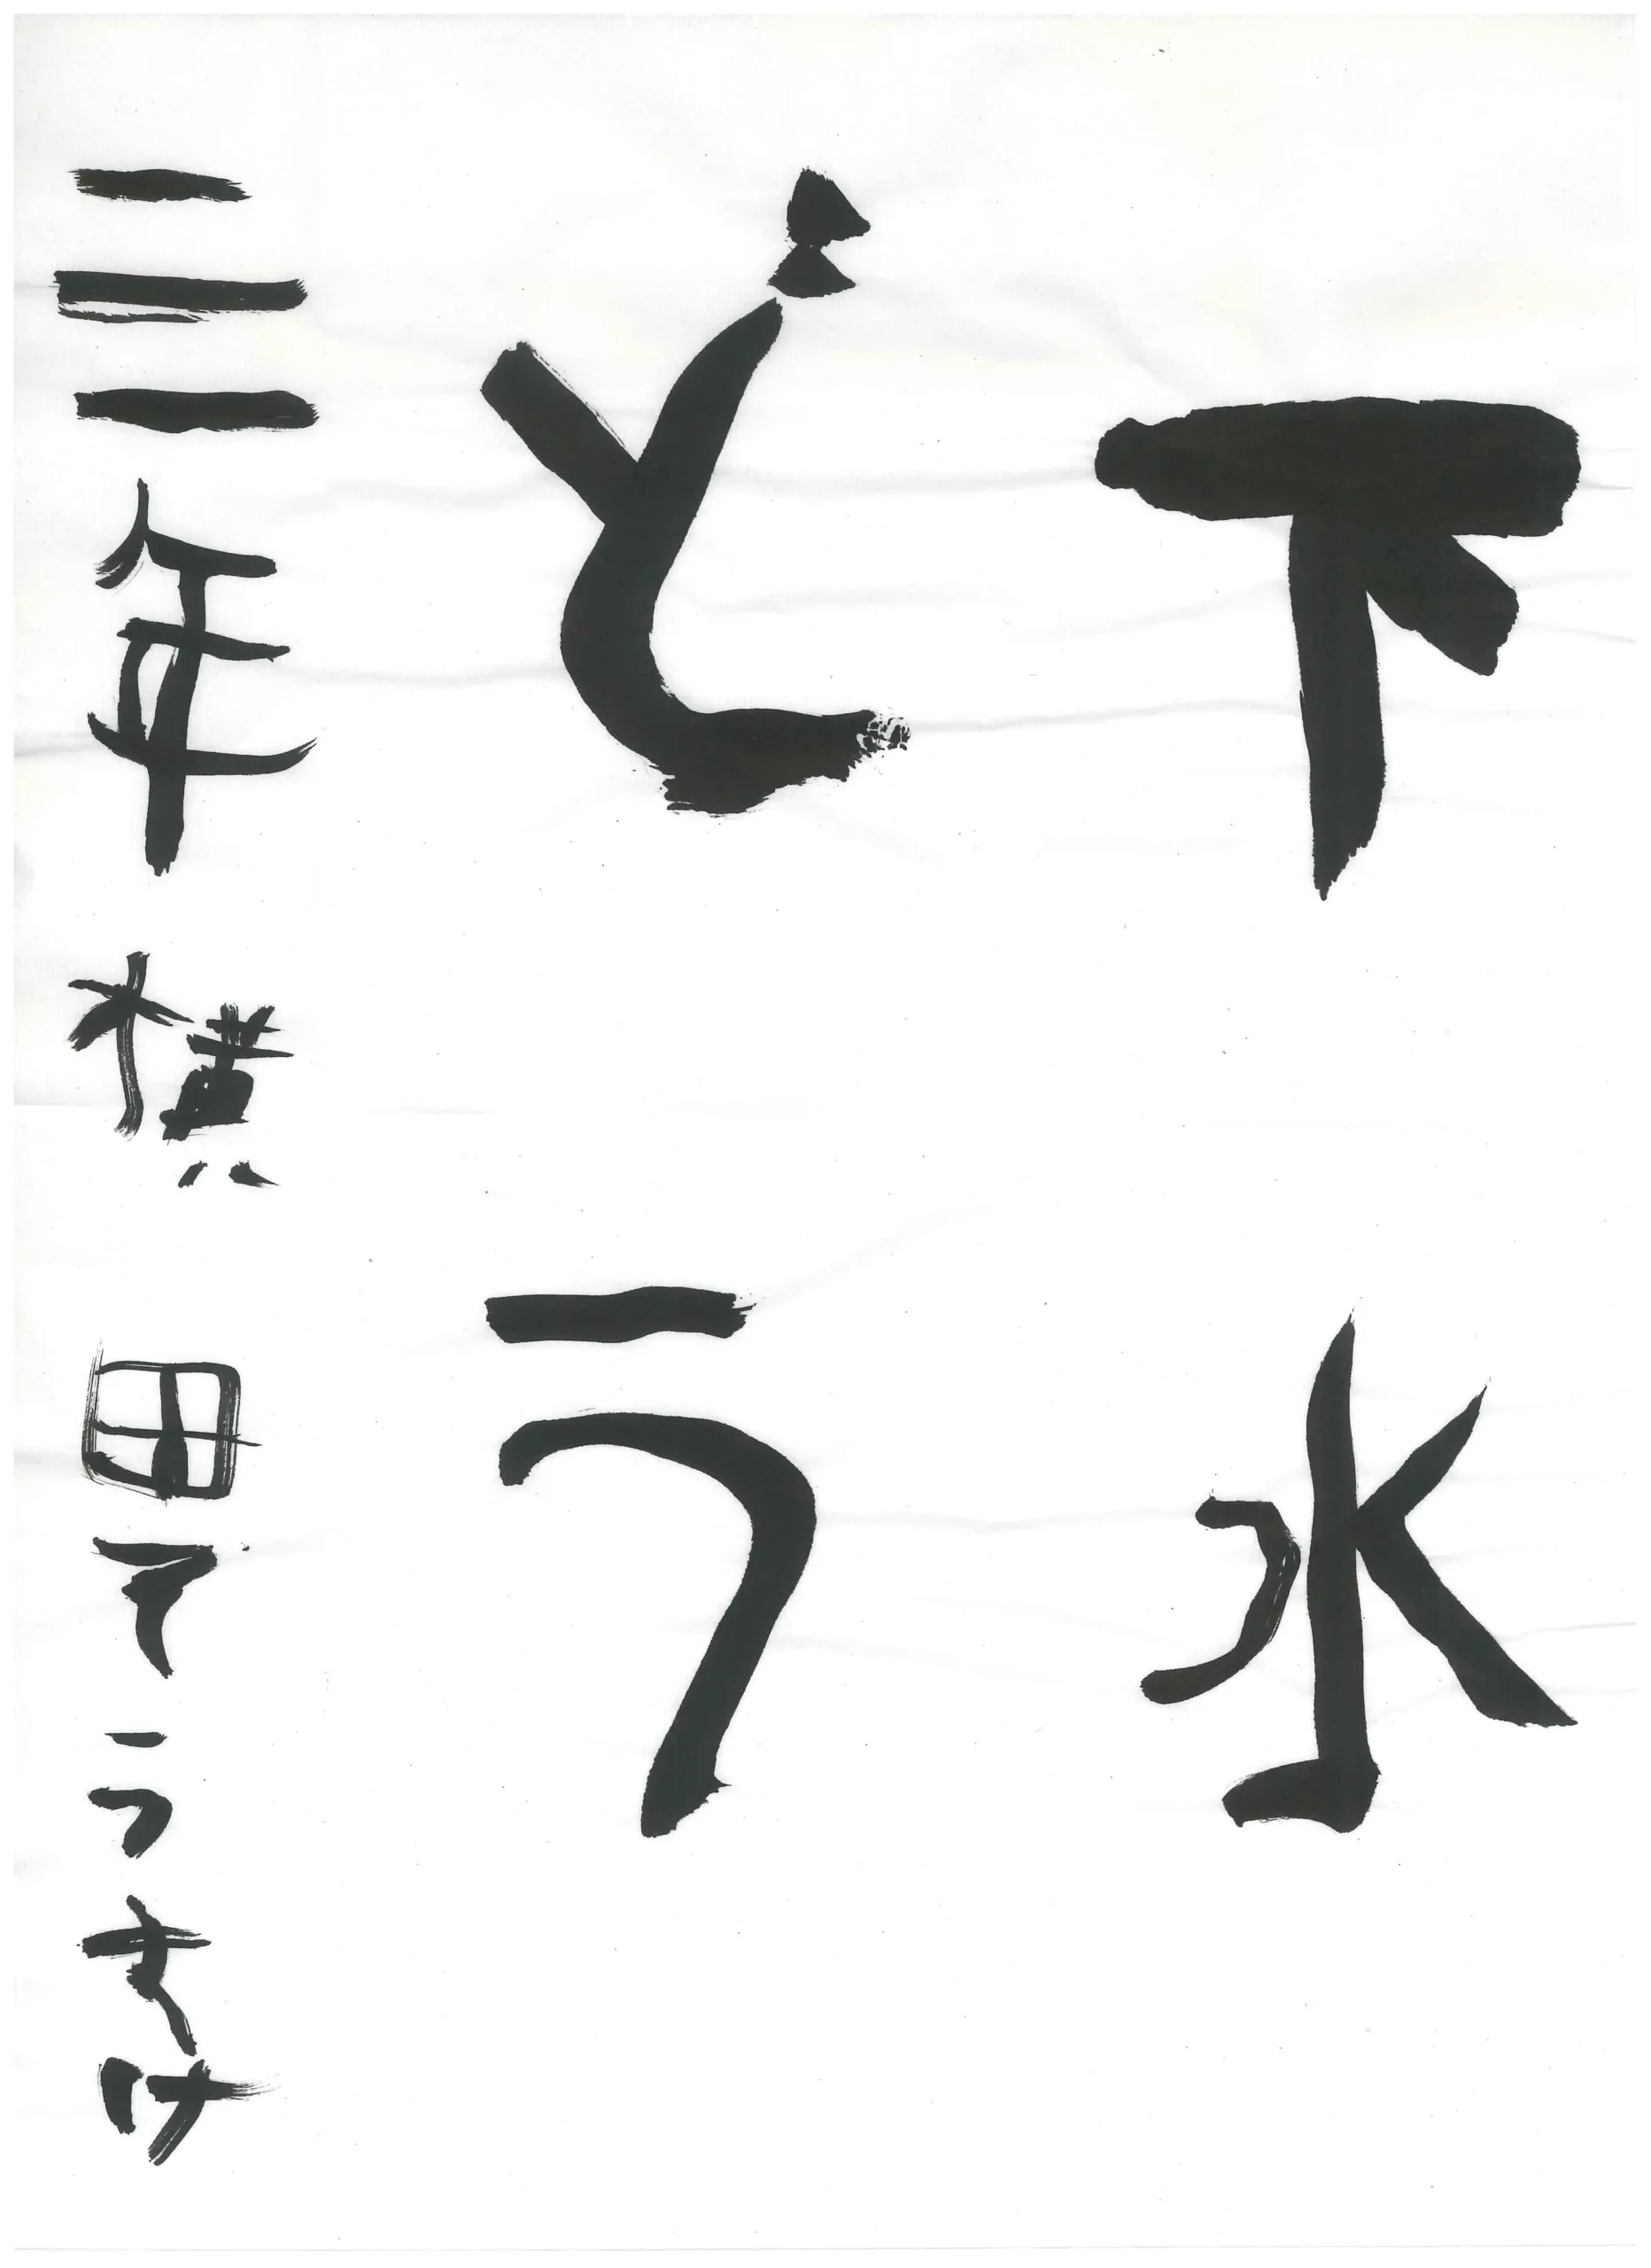 下水
どう
三年横田てうすけ